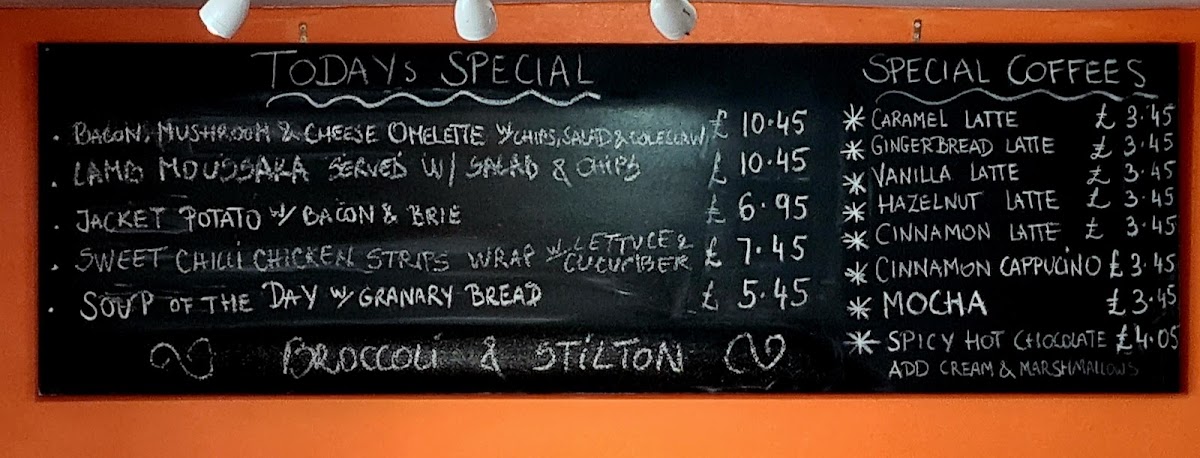 TODAYS SPECIAL
• BACON, MUSHROOM & CHEESE OMELETTE W/ CHIPS, SALAD & COLESLAW £ 10.45
• LAMB MOUSSAKA SERVED W/ SALAD & CHIPS £ 10.45
• JACKET POTATO W/ BACON & BRIE £ 6.95
• SWEET CHILLI CHICKEN STRIPS WRAP W. LETTUCE & CUCUMBER £ 7.45
• SOUP OF THE DAY W/ GRANARY BREAD £ 5.45
BROCCOLI & STILTON
SPECIAL COFFEES
* CARAMEL LATTE £ 3.45
* GINGERBREAD LATTE £ 3.45
* VANILLA LATTE £ 3.45
* HAZELNUT LATTE £ 3.45
* CINNAMON LATTE £ 3.45
* CINNAMON CAPPUCINO £ 3.45
* MOCHA £3.45
* SPICY HOT CHOCOLATE £4.05
ADD CREAM & MARSHMALLOWS